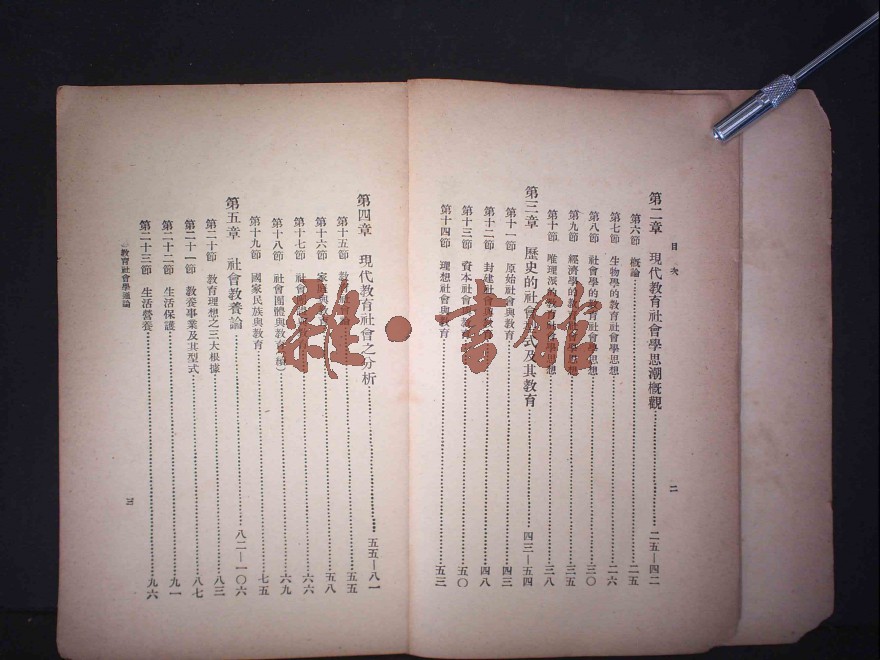 目次
二
第二章 現代教育社會學思潮概觀 二五—四二
第六節 概論 二五
第七節 生物學的教育社會學思想 二六
第八節 社會學的教育社會學思想 三〇
第九節 經濟學的教育社會學思想 三五
第十節 唯理派的教育社會學思想 三八
第三章 歷史的社會 式及其教育 四三—五四
第十一節 原始社會與教育 四三
第十二節 封建社會與教育 四八
第十三節 資本社會與教育 五〇
第十四節 理想社會與教育 五三
第四章 現代教育社會之分析 五五—八一
第十五節 教育社會 論 五五
第十六節 家庭與 五八
第十七節 社會 六六
第十八節 社會團體與教育 六九
第十九節 國家民族與教育 七五
第五章 社會教養論 八二—一〇六
第二十節 教育理想之三大根據 八三
第二十一節 教養事業及其型式 八七
第二十二節 生活保護 九一
第二十三節 生活營養 九六
教育社會學通論
雜·書館